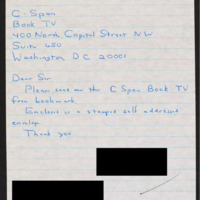 C-Span
Book TV
400 North Capitol Street NW
Suite 650
Washington, D C 20001
Dear Sir
Please send me the C Span Book TV
free bookmark.
Enclosed is a stamped self addressed
envelop
Thank you